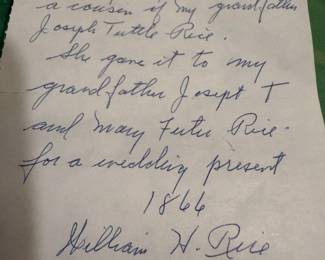 a cousin of my grandfather
Joseph Tuttle Rice.
She gave it to my
grandfather Joseph T
and Mary Rice.
for a wedding present
1866
William H. Rice